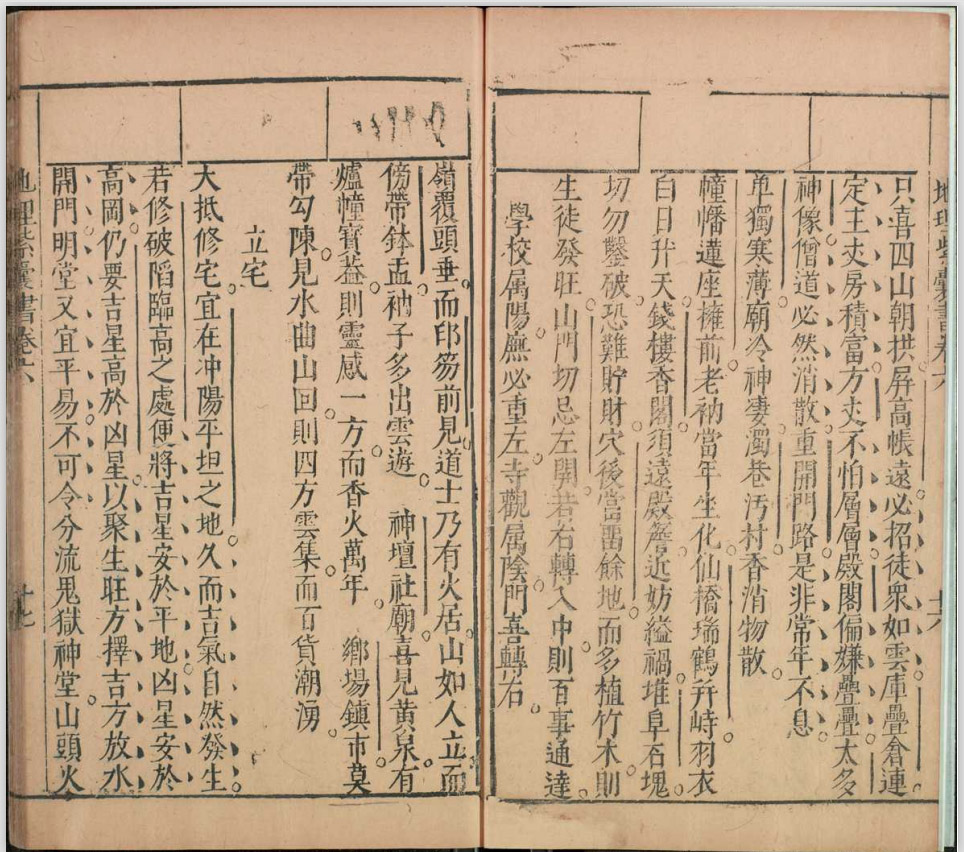 地理紫囊書卷六
十六
只喜四山朝拱屏高帳遠必招徒衆如雲庫疊倉連
定主丈房積富方丈不怕層層殿閣偏嫌疊疊太多
神像僧道必然消散重開門路是非常年不息
单獨寒薄廟冷神凄濁巷汚村香消物散
幢幡蓮座擁前老衲當年坐化仙橋瑞鶴并峙羽衣
白日升天錢樓香閣須遠殿簷近妨縊禍堆阜石塊
切勿鑿破恐難貯財穴後當畱餘地而多植竹木則
生徒發旺山門切忌左開若右轉入中則百事通達
學校属陽廡必重左寺觀属陰門喜轉右
嶺覆頭垂而印笏前見道士乃有火居山如人立而
傍帶鉢盂衲子多出雲遊 神壇社廟喜見黄泉有
爐幢寶葢則靈感一方而香火萬年 鄉塲鎮市莫
帶勾陳見水曲山回則四方雲集而百貨潮湧
立宅
大抵修宅宜在冲陽平坦之地久而吉氣自然發生
若修破䧟臨高之處便將吉星安於平地凶星安於
高岡仍要吉星高於凶星以聚生旺方擇吉方放水
開門明堂又宜平易不可令分流鬼獄神堂山頭火
地理紫囊書卷六
十七